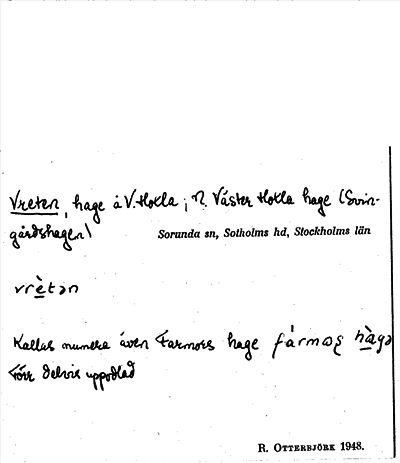 Vreten, hage å V. Hoxla; N. Väster Hoxla hage (Svin-
gårdshagen)
Sorunda sn, Sotholms hd, Stockholms län
vrètən
Kallas numera även Farmors hage fármo̱ʂ hàgə
Förr delvis uppodlad
R. OTTERBJÖRK 1948.